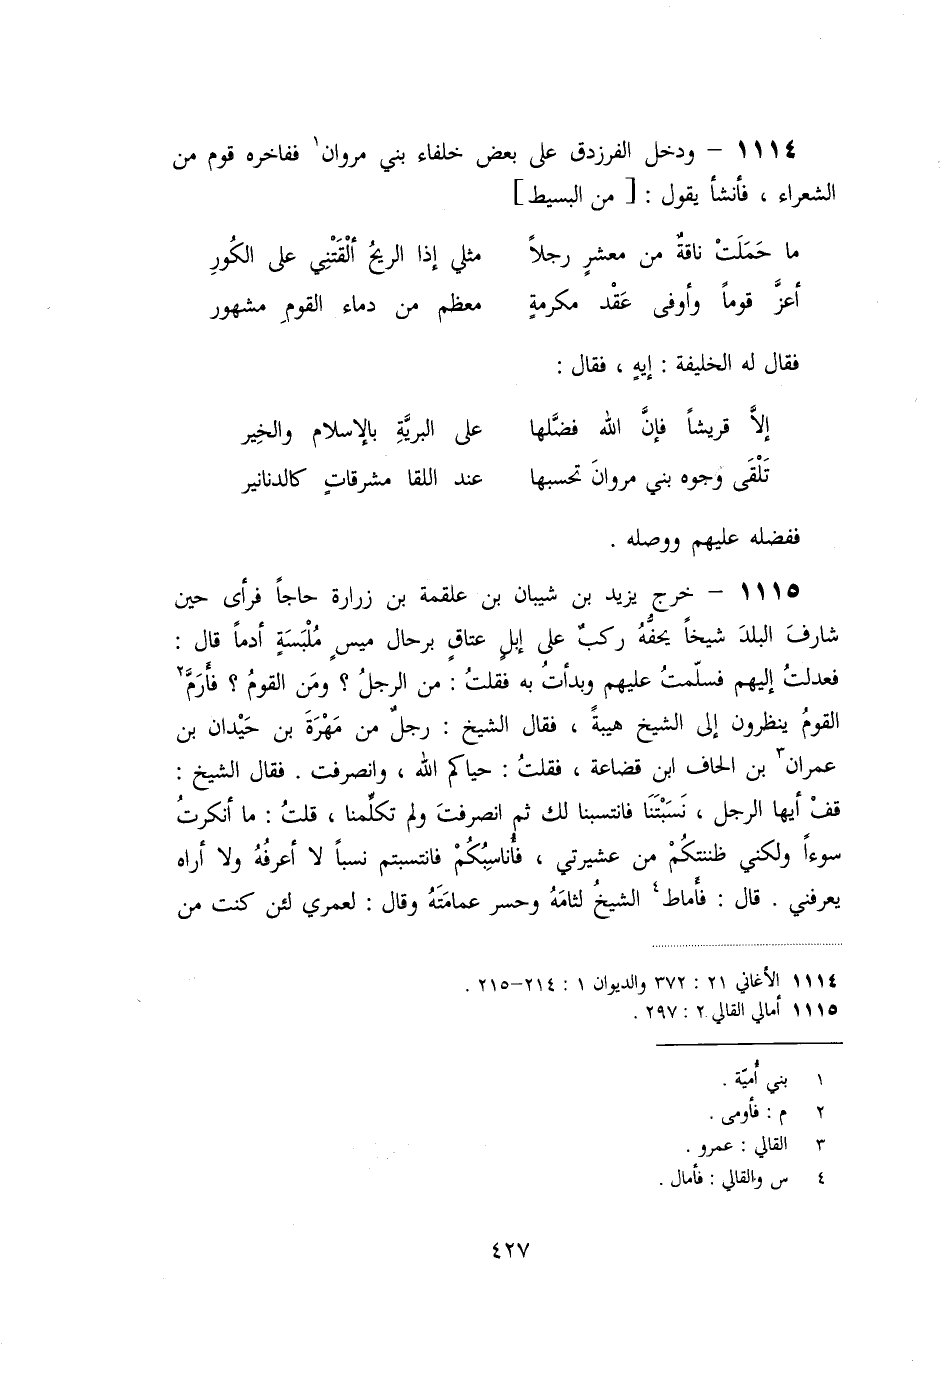 ١١١٤ – ودخل الفرزدق على بعض خلفاء بني مروان١ ففاخره قوم من
الشعراء ، فأنشأ يقول : [ من البسيط ]
ما حَمَلَتْ ناقةٌ من معشرٍ رجلاً مثلي إذا الريحُ ألْقَتْنِي على الكُورِ
أعزَّ قوماً وأوفى عَقْد مكرمةٍ معظم من دماء القومِ مشهور
فقال له الخليفة : إيهٍ ، فقال :
إلاَّ قريشاً فإنَّ الله فضَّلها على البريَّةِ بالإسلام والخِير
تَلْقَى وجوه بني مروانَ تحسبها عند اللقا مشرقاتٍ كالدنانير
ففضله عليهم ووصله .
١١١٥ – خرج يزيد بن شيبان بن علقمة بن زرارة حاجاً فرأى حين
شارفَ البلدَ شيخاً يحفُّهُ ركبٌ على إبلٍ عتاقٍ برحال ميسٍ مُلْبَسَةٍ أدماً قال :
فعدلتُ إليهم فسلّمتُ عليهم وبدأتُ به فقلتُ : من الرجلُ ؟ ومَن القومُ ؟ فأَرَمَّ٢
القومُ ينظرون إلى الشيخ هيبةً ، فقال الشيخ : رجلٌ من مَهْرَةَ بن حَيْدان بن
عمران٣ بن الحاف ابن قضاعة ، فقلتُ : حياكم الله ، وانصرفت . فقال الشيخ :
قفْ أيها الرجل ، نَسَبْتَنَا فانتسبنا لك ثم انصرفتَ ولم تكلِّمنا ، قلتُ : ما أنكرتُ
سوءاً ولكني ظننتكُمْ من عشيرتي ، فأُناسِبُكُمْ فانتسبتم نسباً لا أعرفُهُ ولا أراه
يعرفني . قال : فأَماط٤ الشيخُ لثامَهُ وحسر عمامَتَهُ وقال : لعمري لئن كنت من
١١١٤ الأغاني ٢١ : ٣٧٢ والديوان ١ : ٢١٤–٢١٥ .
١١١٥ أمالي القالي ٢ : ٢٩٧ .
١ بني أُميّة .
٢ م : فأومى .
٣ القالي : عمرو .
٤ س والقالي : فأمال .
٤٢٧